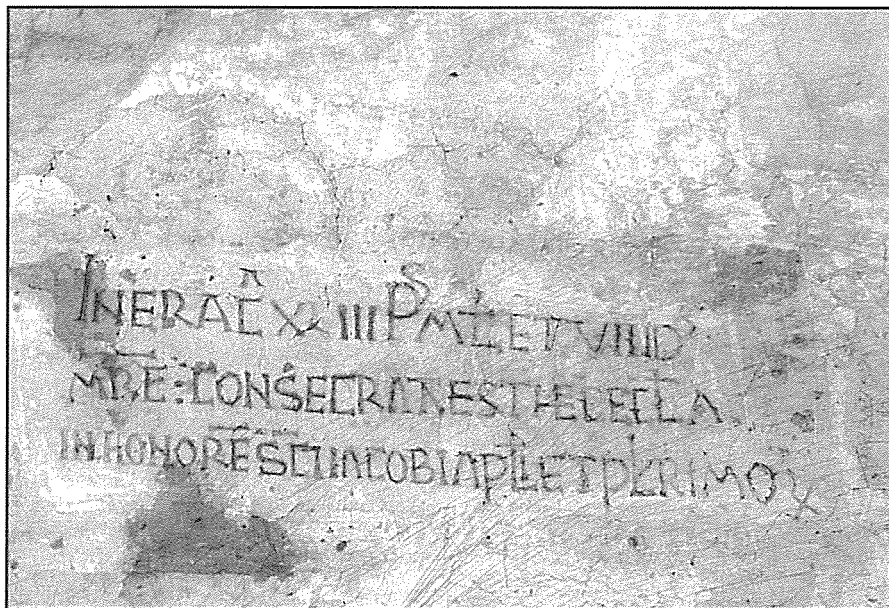 IN ERA C̄ XXIII PS̄ M̄L ET VIIII D'
MBR̄E : CONSECRATA EST HEC ECLA
IN HONORE SCI IACOBI APLI ET PLRIMOR